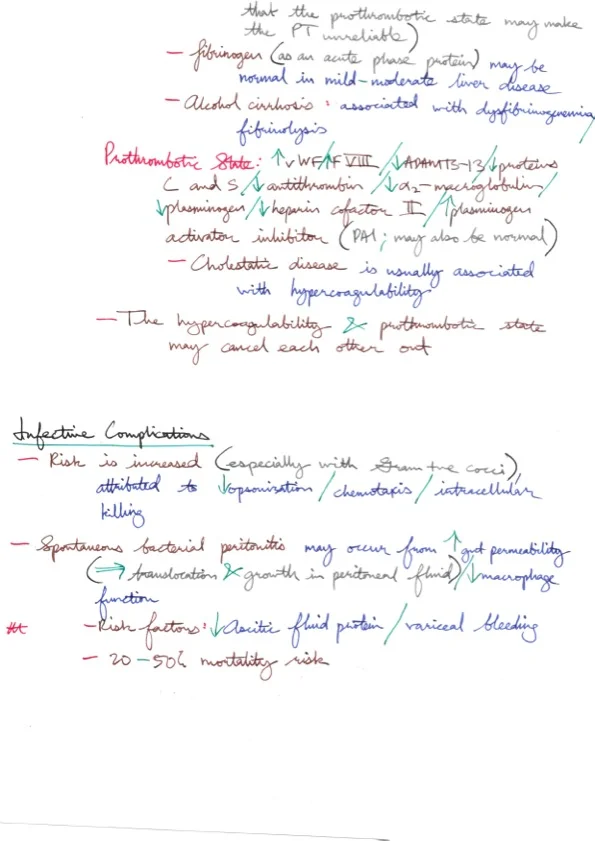 that the prothrombotic state may make
the PT unreliable)
— fibrinogen (as an acute phase protein) may be
normal in mild-moderate liver disease
— Alcohol cirrhosis : associated with dysfibrinogenemia/
fibrinolysis
Prothrombotic State: ↑vWF/↑F VIII/↓ADAMTS-13/↓proteins
C and S/↓antithrombin/↓α2-macroglobulin/
↓plasminogen/↓heparin cofactor II/↑plasminogen
activator inhibitor (PAI; may also be normal)
— Cholestatic disease is usually associated
with hypercoagulability
— The hypercoagulability & prothrombotic state
may cancel each other out
Infective Complications
— Risk is increased (especially with Gram +ve cocci),
attributed to ↓opsonization/chemotaxis/intracellular
killing
— Spontaneous bacterial peritonitis may occur from ↑gut permeability
(⇒ translocation & growth in peritoneal fluid)/↓macrophage
function
— Risk factors: ↓Ascitic fluid protein/variceal bleeding
— 20-50% mortality risk